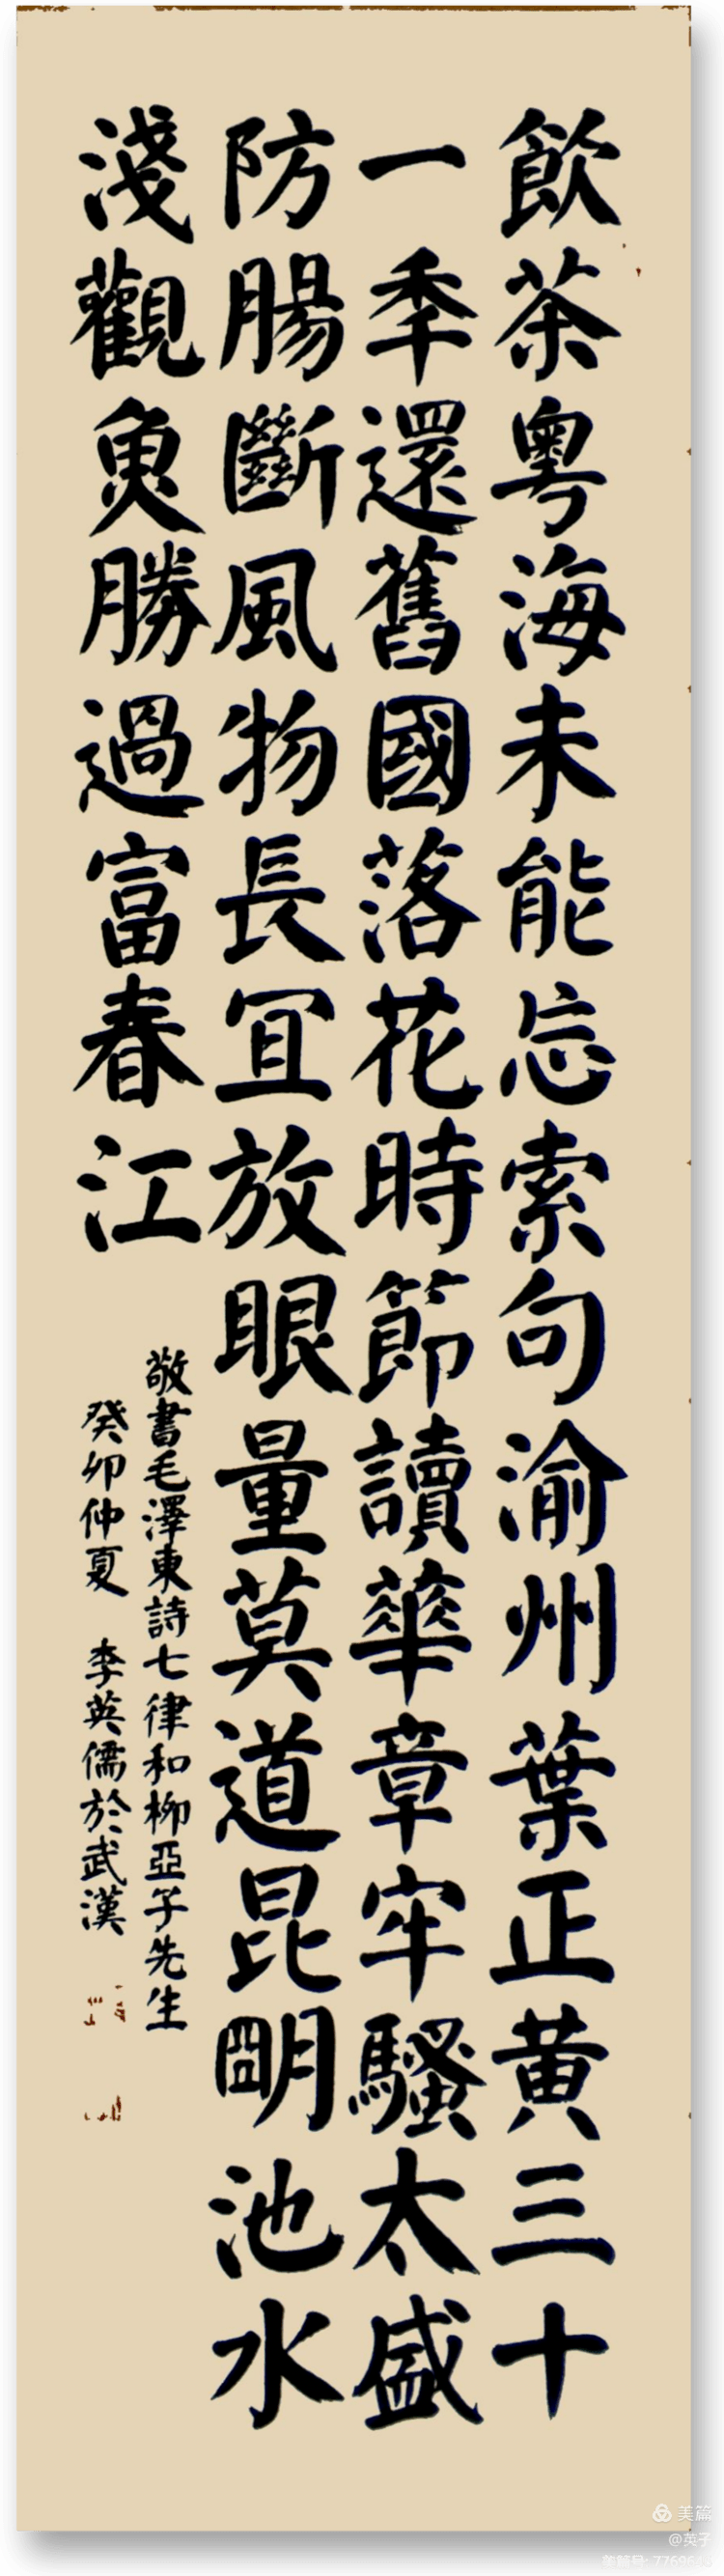 飲茶粵海未能忘索句渝州葉正黃三十
一秊還舊國落花時節讀華章牢騷太盛
防腸斷風物長冝放眼量莫道昆朙池水
淺觀魚勝過富春江
敬書毛澤東詩七律和柳亞子先生
癸卯仲夏 李英儒於武漢
美篇
@英子